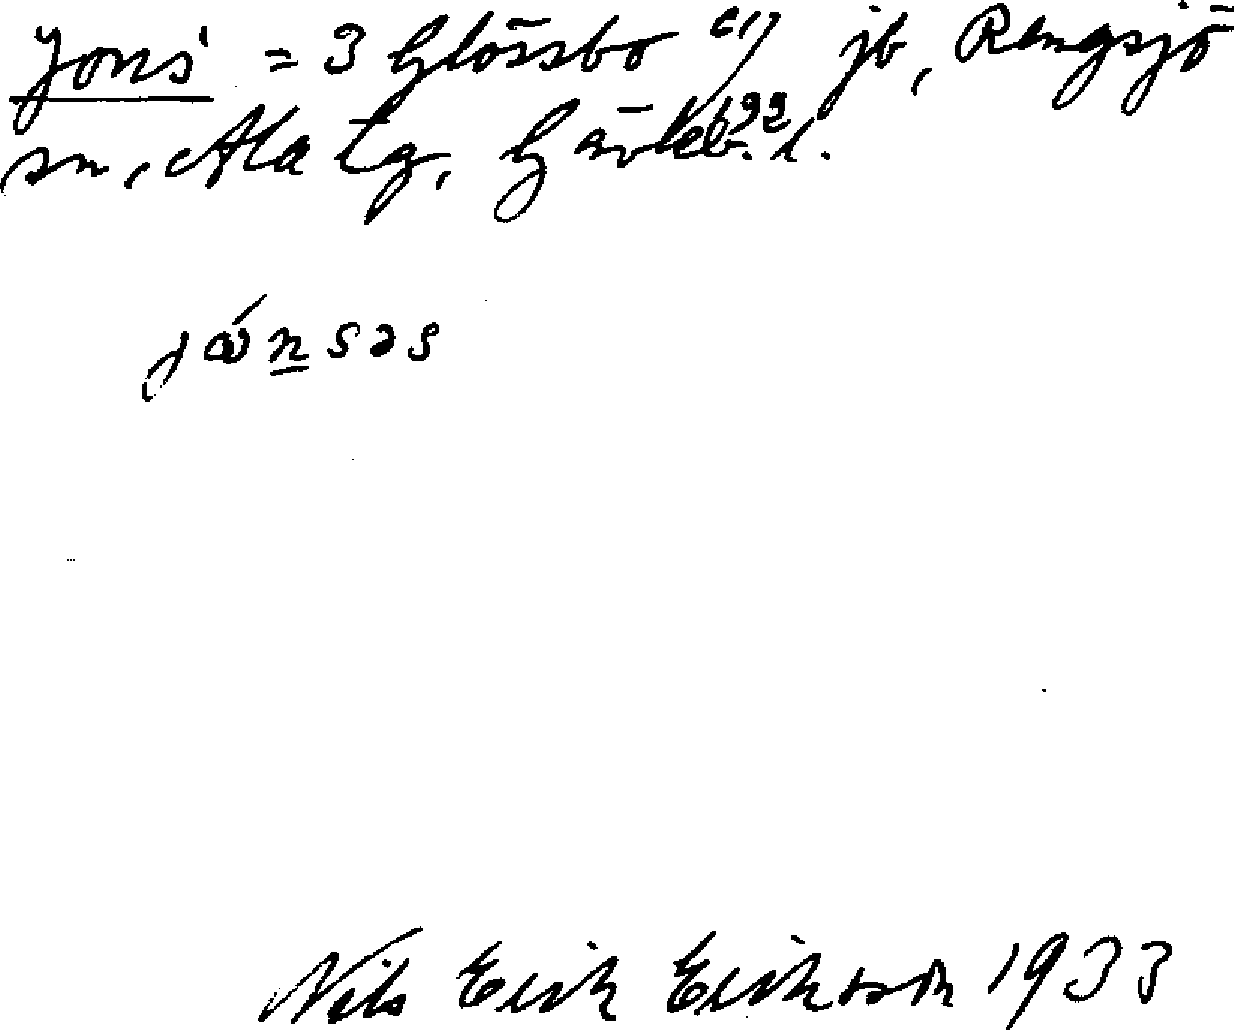 Jons' = 3 Glössbo jb, Rengsjö
sn, Ala tg, Gävleb. l.
jónsəs
Nils Erik Eriksson 1933